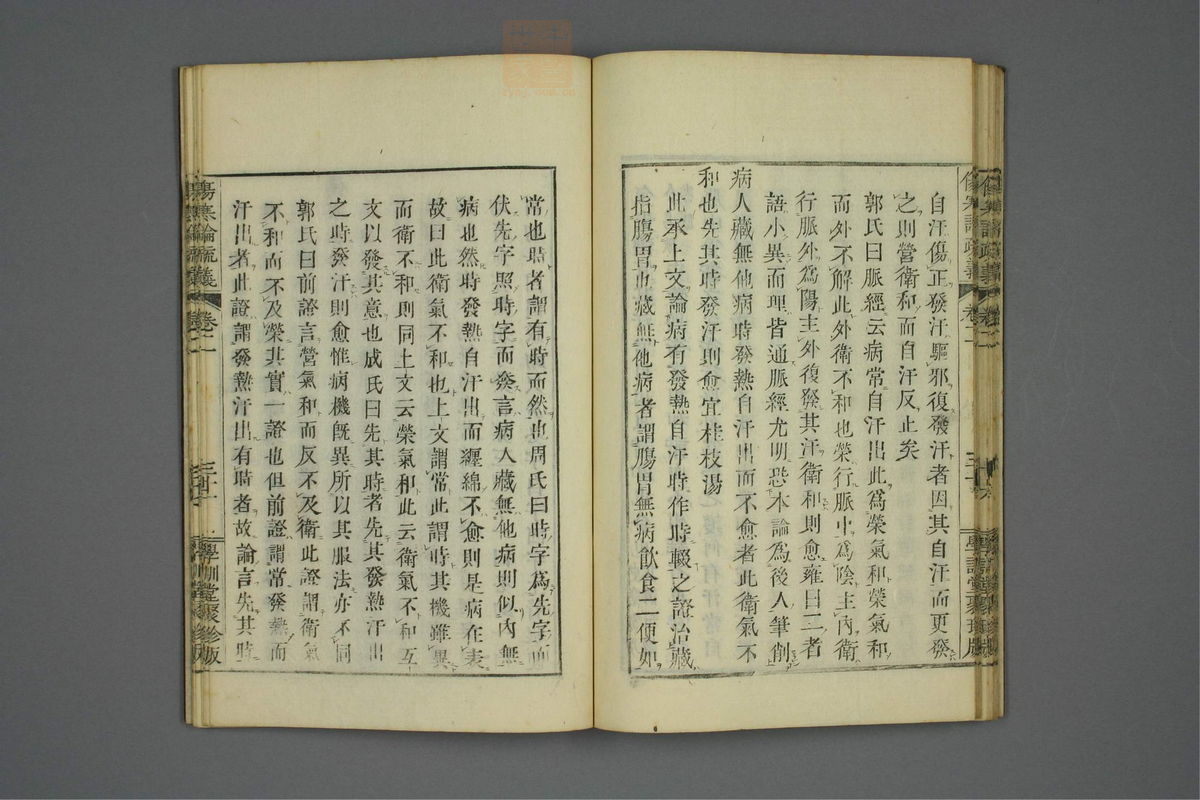 自汗傷正發汗驅邪復發汗者因其自汗而更發
之則營衛和而自汗反止矣
郭氏曰脈經云病常自汗出此爲榮氣和榮氣和
而外不解此外衛不和也榮行脈中爲陰主內衛
行脈外爲陽主外復發其汗衛和則愈雍曰二者
語小異而理皆通脈經尤明恐本論爲後人筆削
病人藏無他病時發熱自汗出而不愈者此衛氣不
和也先其時發汗則愈宜桂枝湯
此承上文論病有發熱自汗時作時輟之證治藏
指腸胃也藏無他病者謂腸胃無病飲食二便如
常也時者謂有時而然也周氏曰時字爲先字而
伏先字照時字而發言病人藏無他病則似內無
病也然時發熱自汗出而纏綿不愈則是病在表
故曰此衛氣不和也上文謂常此謂時其機雖異
而衛不和則同上文云榮氣和此云衛氣不和互
文以發其意也成氏曰先其時者先其發熱汗出
之時發汗則愈惟病機旣異所以其服法亦不同
郭氏曰前證言營氣和而反不及衛此證謂衛氣
不和而不及榮其實一證也但前證謂常發熱而
汗出者此證謂發熱汗出有時者故論言先其時
傷寒論疏義
卷二
三十一
學訓堂聚珍版